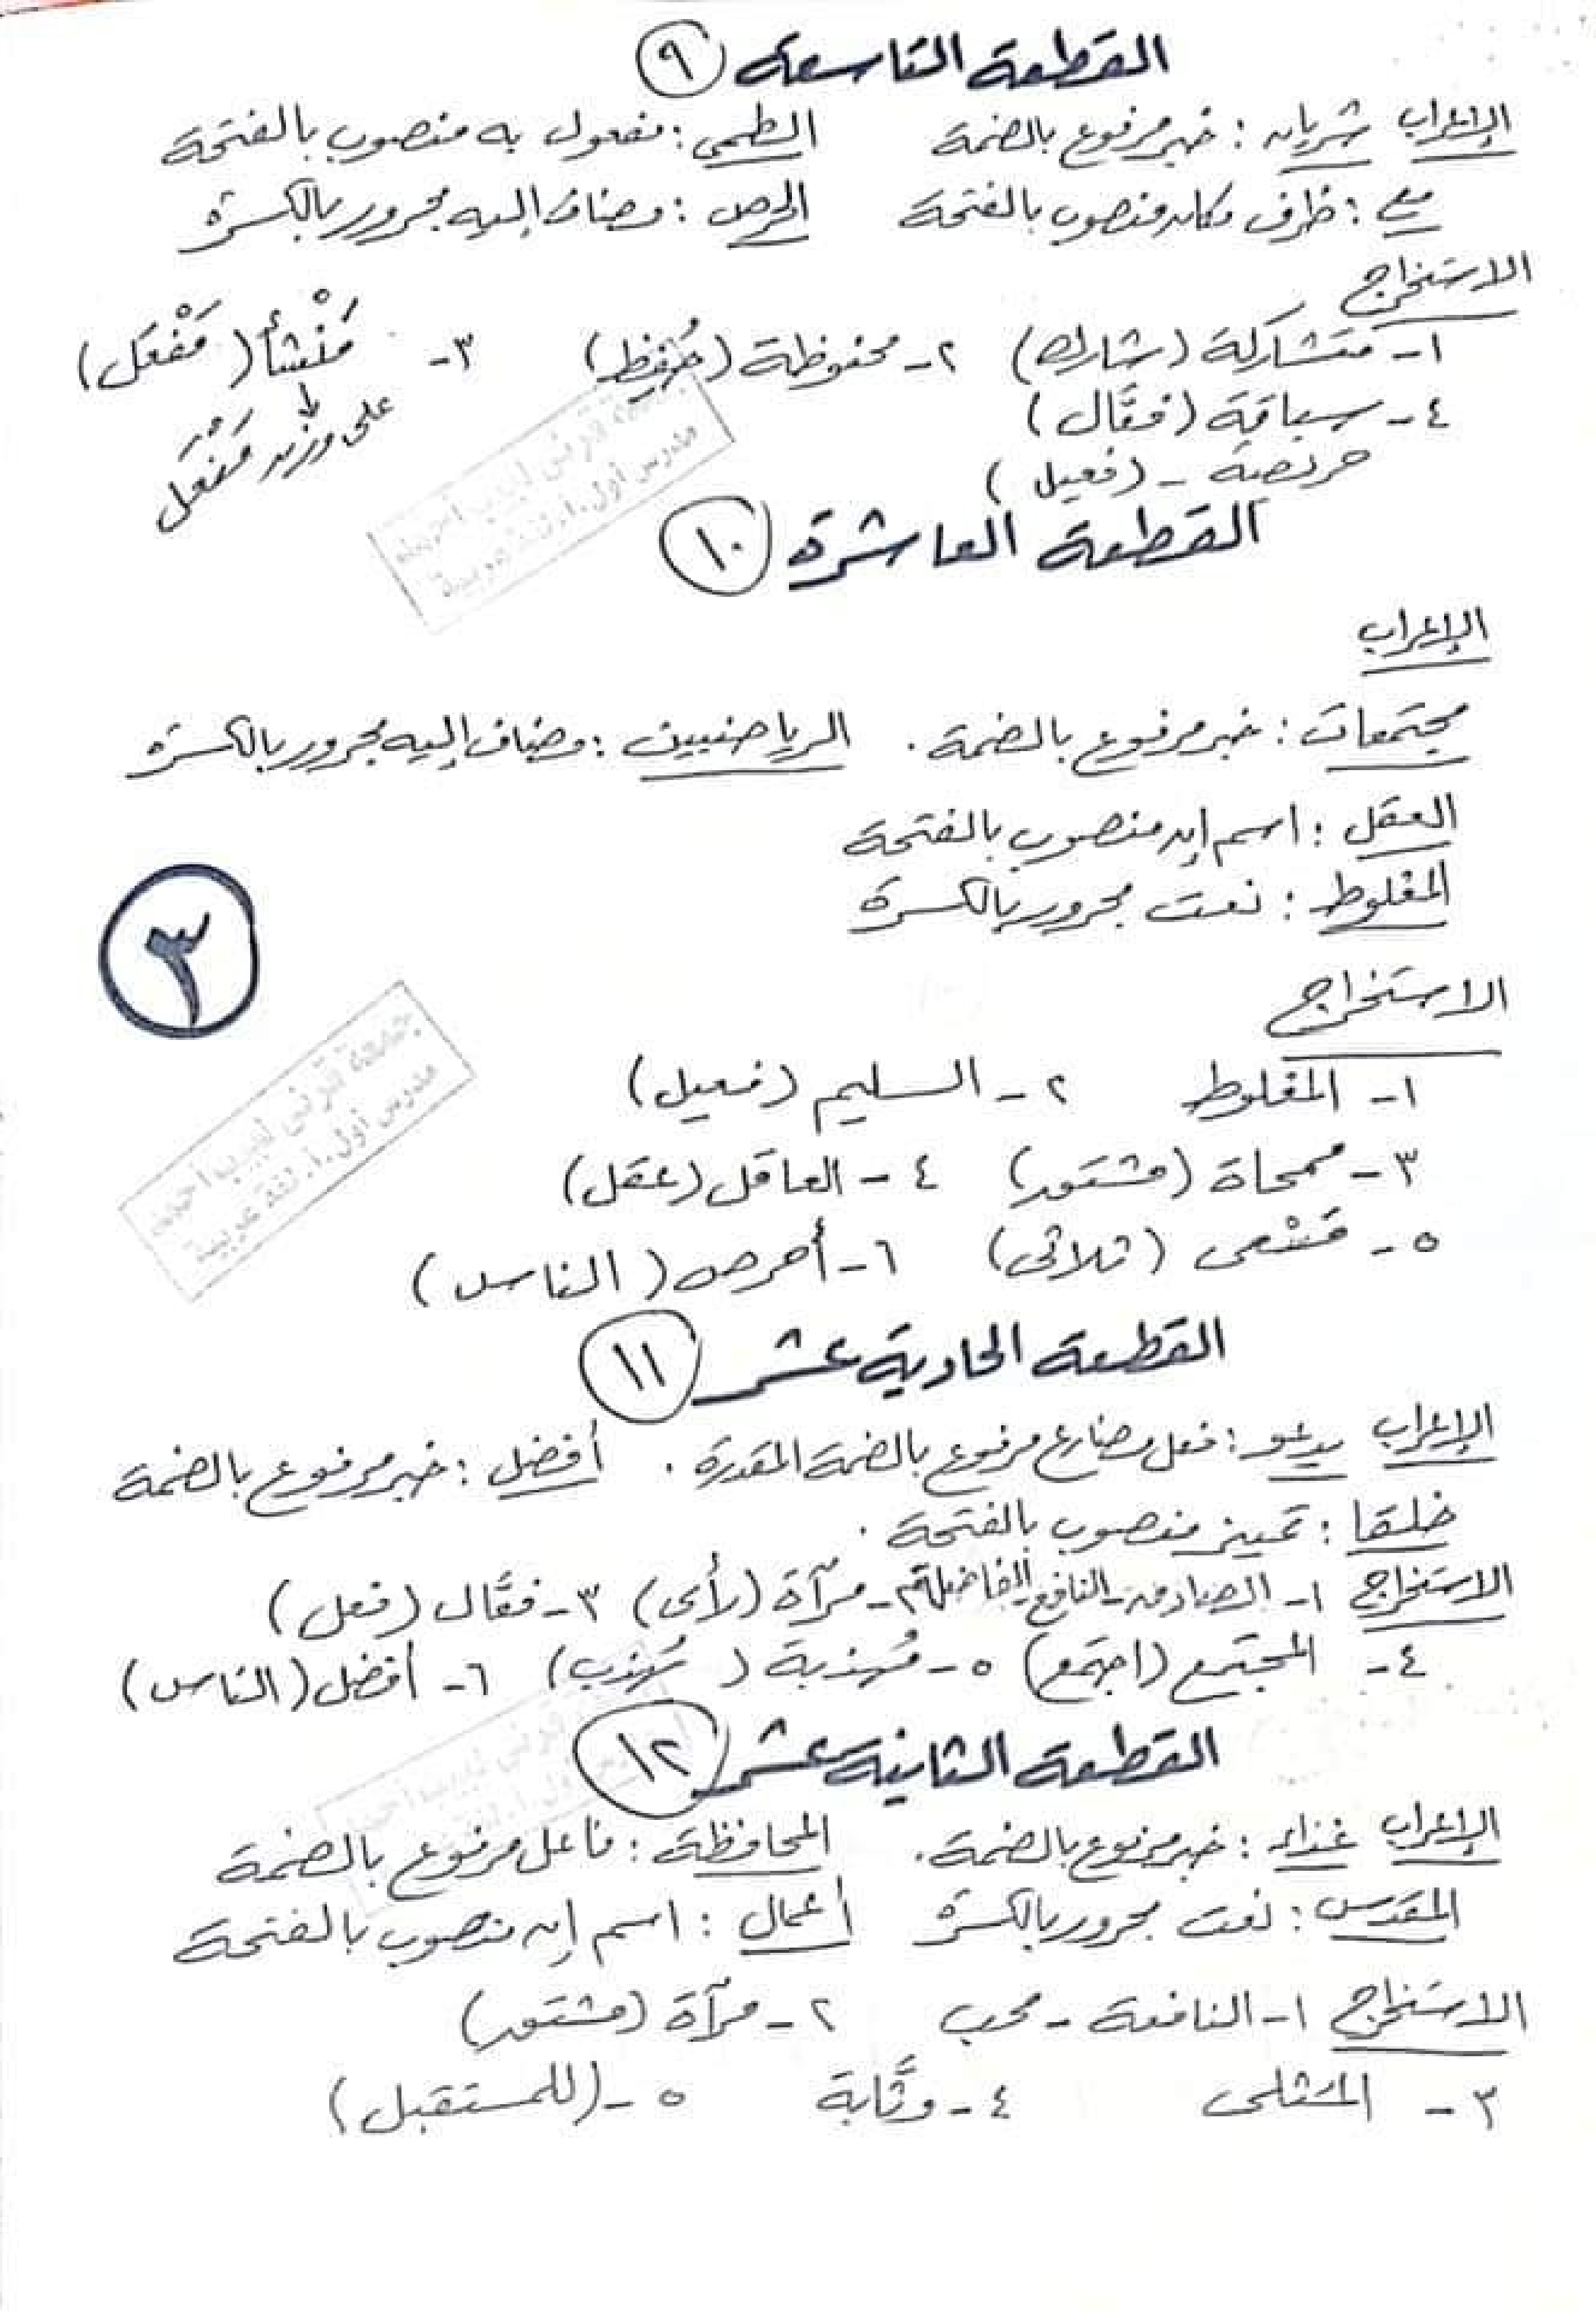 القطعة التاسعة ٩
الإعراب شريان : خبر مرفوع بالضمة الطمى : مفعول به منصوب بالفتحة
مع : ظرف مكان منصوب بالفتحة الحرص : مضاف إليه مجرور بالكسرة
الاستخراج
١- متشاركة (شارك) ٢- محفوظة (حُفِظ) ٣- مَنْشأ (مَفْعَل)
٤- سباقة (فعَّال) على وزن مَفْعَل
حريصة - (فعيل)
القطعة العاشرة ١٠
الإعراب
مجتمعات : خبر مرفوع بالضمة . الرياضيين : مضاف إليه مجرور بالكسرة
العقل : اسم إن منصوب بالفتحة
المغلوط : نعت مجرور بالكسرة
٣
الاستخراج
١- المغلوط ٢- السليم (فعيل)
٣- ممحاة (مشتق) ٤- العاقل (عقل)
٥- مَسْعى (ثلاثى) ٦- أحرص (الناس)
القطعة الحادية عشر ١١
الإعراب يدعو : فعل مضارع مرفوع بالضمة المقدرة . أفضل : خبر مرفوع بالضمة
خلقا : تمييز منصوب بالفتحة .
الاستخراج ١- النافع - الفاضلة ٢- مرآة (رأى) ٣- فعَّال (فعل)
٤- المجتمع (اجتمع) ٥- مُهذبة (يُهذب) ٦- أفضل (الناس)
القطعة الثانية عشر ١٢
الإعراب غذاء : خبر مرفوع بالضمة . المحافظة : فاعل مرفوع بالضمة
المقدس : نعت مجرور بالكسرة أعمال : اسم إن منصوب بالفتحة
الاستخراج ١- النافعة - محب ٢- مرآة (مشتق)
٣- المثلى ٤- وثَّابة ٥- (للمستقبل)